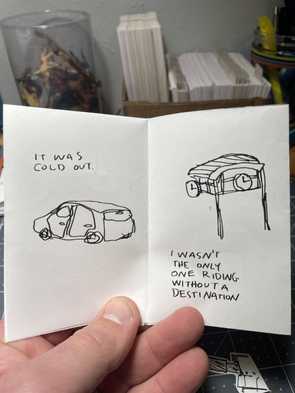 IT WAS
COLD OUT.
I WASN'T
THE ONLY
ONE RIDING
WITHOUT A
DESTINATION